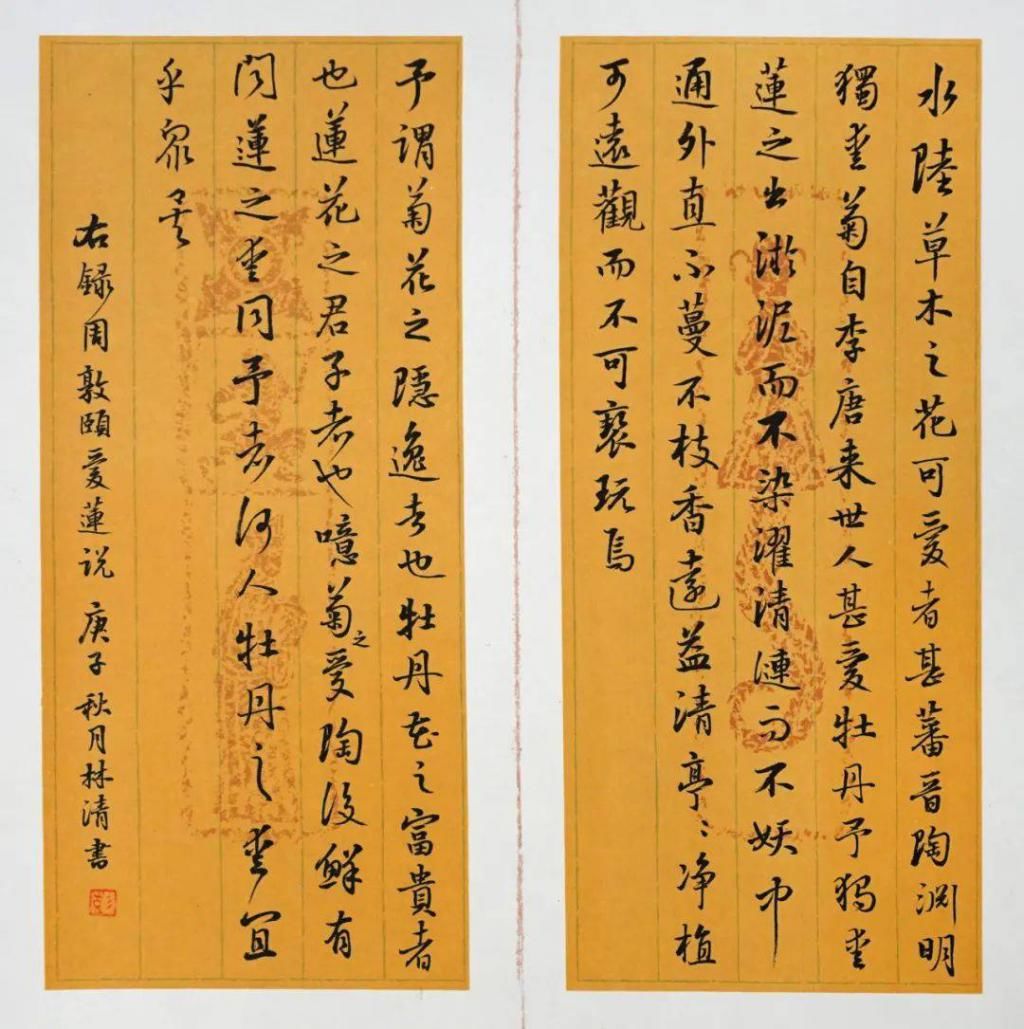 水陸草木之花可愛者甚蕃晉陶淵明
獨愛菊自李唐来世人甚愛牡丹予獨愛
蓮之出淤泥而不染濯清漣而不妖中
通外直不蔓不枝香遠益清亭〻净植
可遠觀而不可褻玩焉
予謂菊花之隱逸者也牡丹花之富貴者
也蓮花之君子者也噫菊之愛陶後鮮有
聞蓮之愛同予者何人牡丹之愛宜
乎眾矣
右録周敦頤愛蓮说 庚子秋月林清書